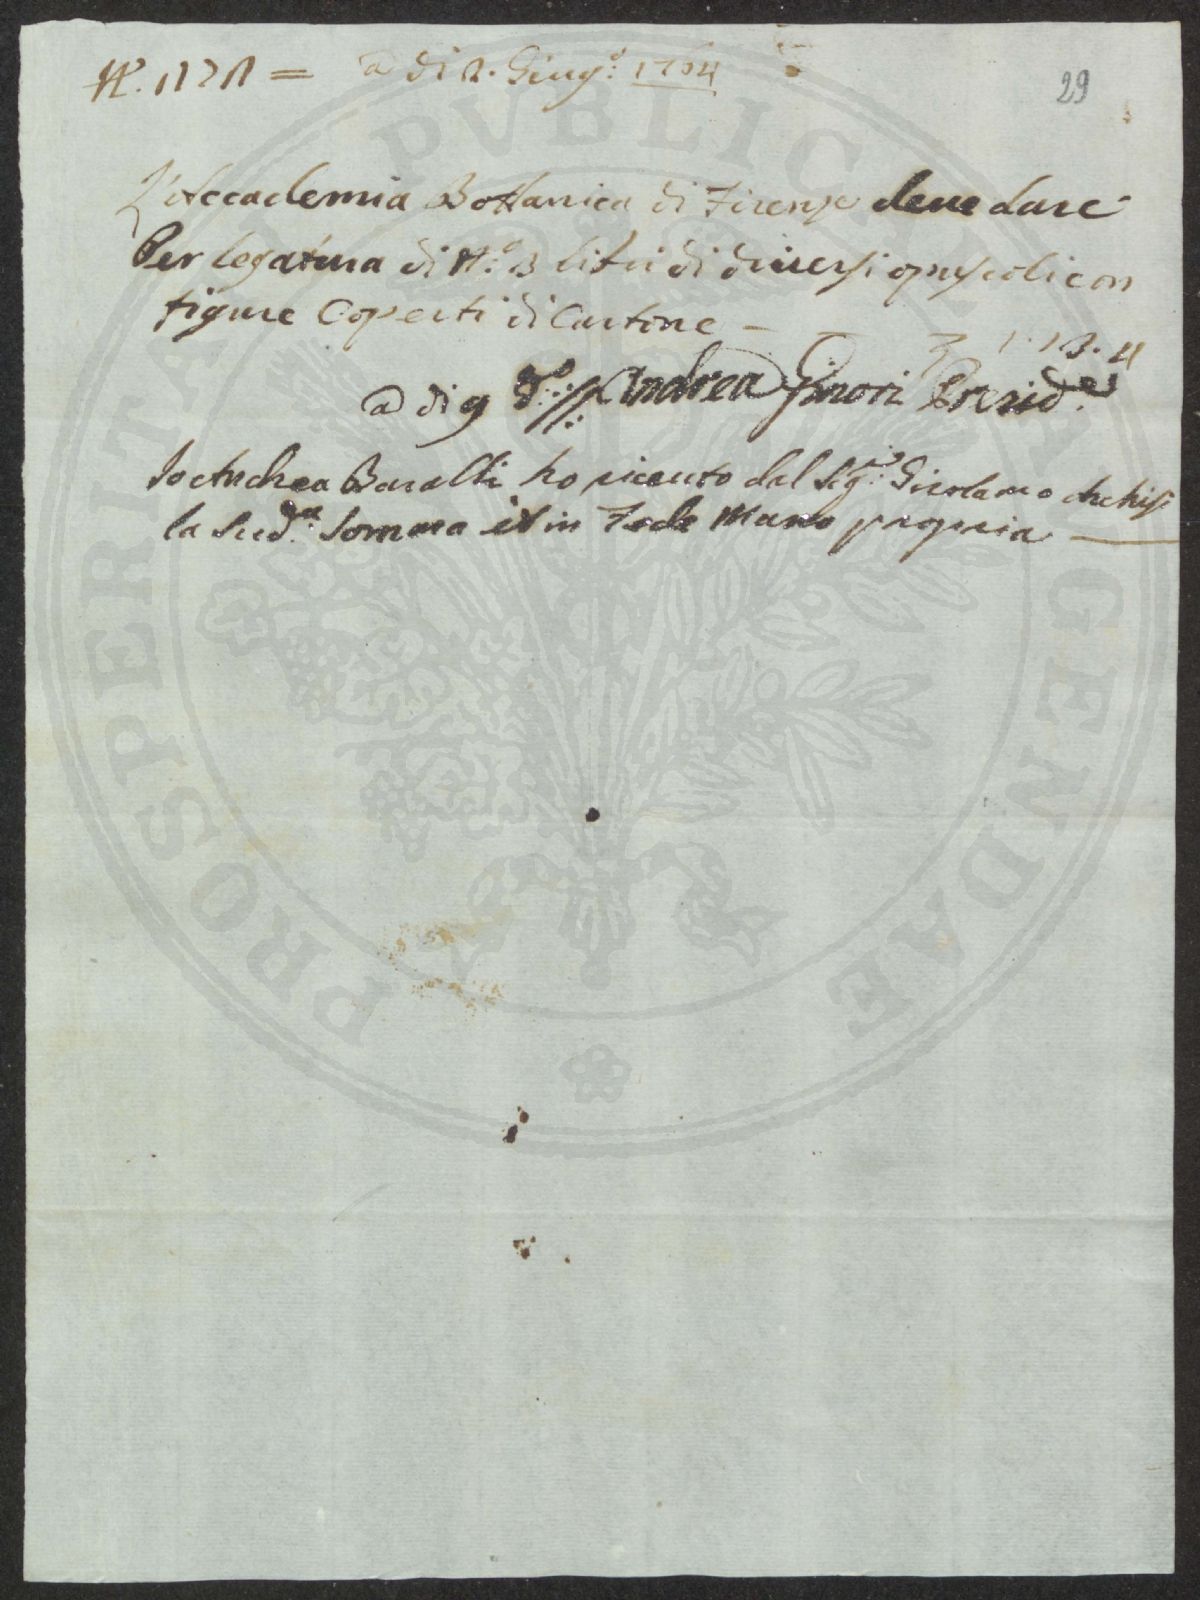 a dì 2. Giug.º 1764
29
L'Accademia Bottanica di Firenze deve dare
Per legatura di N.º 3 libri di diversi opuscoli con
figure Coperti di Cartone — 1.13.4
a dì 9 d.º Andrea Ginori Presid.e
Io Andrea Baralli ho riceuto dal Sig.re Girolamo
la Sud.a Somma et in Fede Mano propria
PROSPERITATI PVBLICAE AVGENDAE